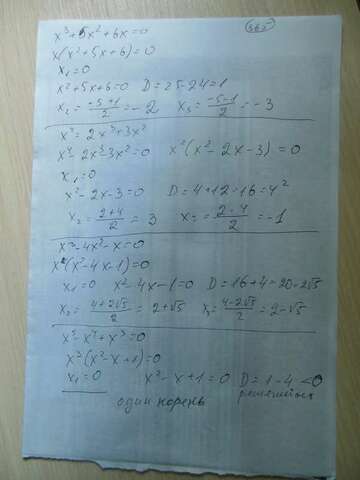 565
x³+5x²+6x=0
x(x²+5x+6)=0
x₁=0
x²+5x+6=0 D=25-24=1
x₂=(-5+1)/2=-2 x₃=(-5-1)/2=-3
x⁴=2x³+3x²
x⁴-2x³-3x²=0 x²(x²-2x-3)=0
x₁=0
x²-2x-3=0 D=4+12=16=4²
x₂=(2+4)/2=3 x₃=(2-4)/2=-1
x³-4x²-x=0
x(x²-4x-1)=0
x₁=0 x²-4x-1=0 D=16+4=20=2√5
x₂=(4+2√5)/2=2+√5 x₃=(4-2√5)/2=2-√5
x⁵-x⁴+x³=0
x³(x²-x+1)=0
x₁=0 x²-x+1=0 D=1-4<0
один корень